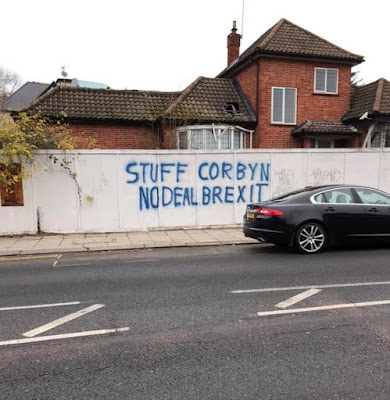 STUFF CORBYN
NO DEAL BREXIT